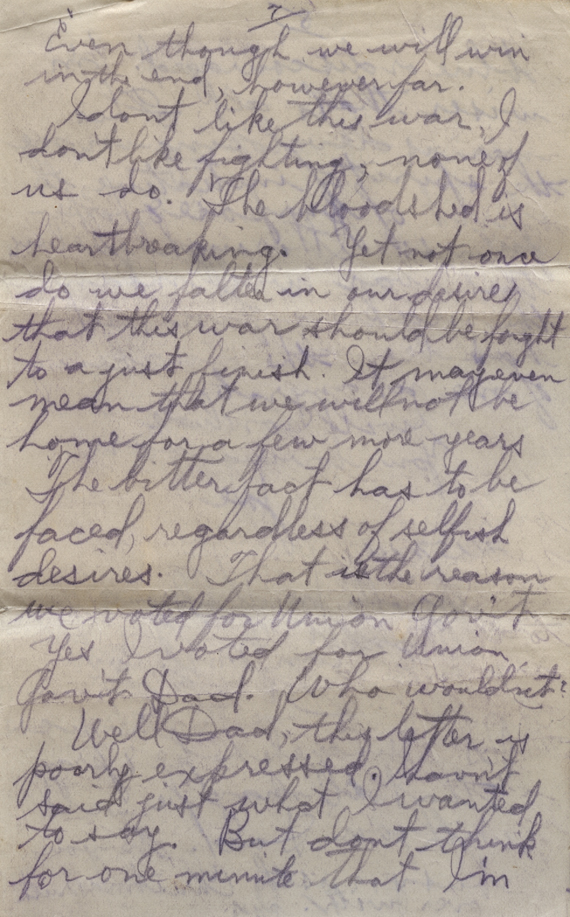 7
Even though we will win
in the end, however far.
I dont like this war, I
don't like fighting, none of
us do. The bloodshed is
heartbreaking. Yet not once
do we falter in our desire
that this war should be fought
to a just finish. It may even
mean that we will not be
home for a few more years
The bitter fact has to be
faced, regardless of selfish
desires. That is the reason
we voted for Union Gov't
Yes I voted for Union
Gov't Dad. Who wouldn't?
Well Dad, this letter is
poorly expressed. I havn't
said just what I wanted
to say. But dont think
for one minute that I'm